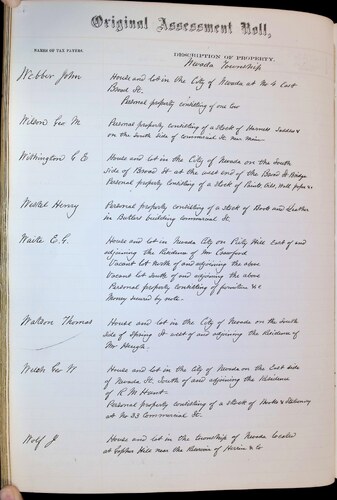 Original Assessment Roll,
NAMES OF TAX PAYERS.
DESCRIPTION OF PROPERTY.
Nevada Township
Webber John
House and lot in the City of Nevada at No 4 East
Broad St.
Personal property consisting of one cow
Wilson Geo M
Personal property consisting of a stock of Harness Saddles &
on the South side of Commercial St. near Main
Withington G E
House and lot in the City of Nevada on the South
side of Broad St at the west end of the Broad St Bridge
Personal property consisting of a stock of Paints, Oils, Wall paper &c
Henry
Personal property consisting of a stock of Boots and Leather
in Butlers building Commercial St.
Waite E. G.
House and lot in Nevada City on Piety Hill East of and
adjoining the Residence of Mr Crawford
Vacant lot North of and adjoining the above
Vacant lot South of and adjoining the above
Personal property consisting of furniture &c
Money secured by note
Watson Thomas
House and lot in the City of Nevada on the South
side of Spring St west of and adjoining the Residence of
Mr
Welch Geo W
House and lot in the City of Nevada on the East side
of Nevada St. South of and adjoining the Residence
of R M Hunt
Personal property consisting of a stock of Books & Stationery
at No 33 Commercial St.
Wolf J
House and lot in the township of Nevada located
at Gopher Hill near the of &Co